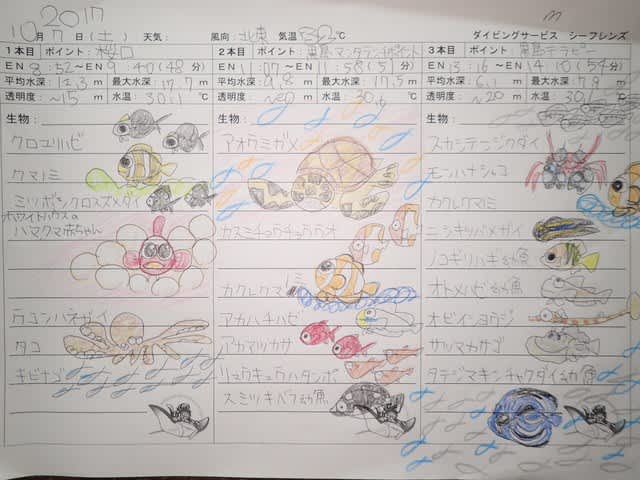 2017
10月7日(土) 天気: 風向: 北東 気温 32℃ ダイビングサービス シーフレンズ
1本目 ポイント: 桜口
EN 8:52~EN 9:40(48分)
平均水深: 12.3m 最大水深: 17.7m
透明度: ~15m 水温: 30.1℃
生物:
クロユリハゼ
クマノミ
ミツボシクロスズメダイ
ホワイトハウスの
ハマクマ赤ちゃん
ウコンハネガイ
タコ
キビナゴ
2本目 ポイント: 黒島マンタランポイント
EN 11:07~EN 11:58(51分)
平均水深: 9.8m 最大水深: 17.5m
透明度: ~20m 水温: 30.℃
生物:
アオウミガメ
カスミチョウチョウウオ
カクレクマノミ
アカハチハゼ
アカマツカサ
リュウキュウハタンポ
スミツキベラ幼魚
3本目 ポイント: 黒島テラピー
EN 13:16~EN 14:10(54分)
平均水深: 6.1m 最大水深: 7.9m
透明度: ~20m 水温: 30.1℃
生物:
スカシテンジクダイ
モンハナシャコ
カクレクマノミ
ニシキツバメガイ
ノコギリハギ幼魚
オトメハゼ幼魚
オビイシヨウジ
サツマカサゴ
タテジマキンチャクダイ幼魚